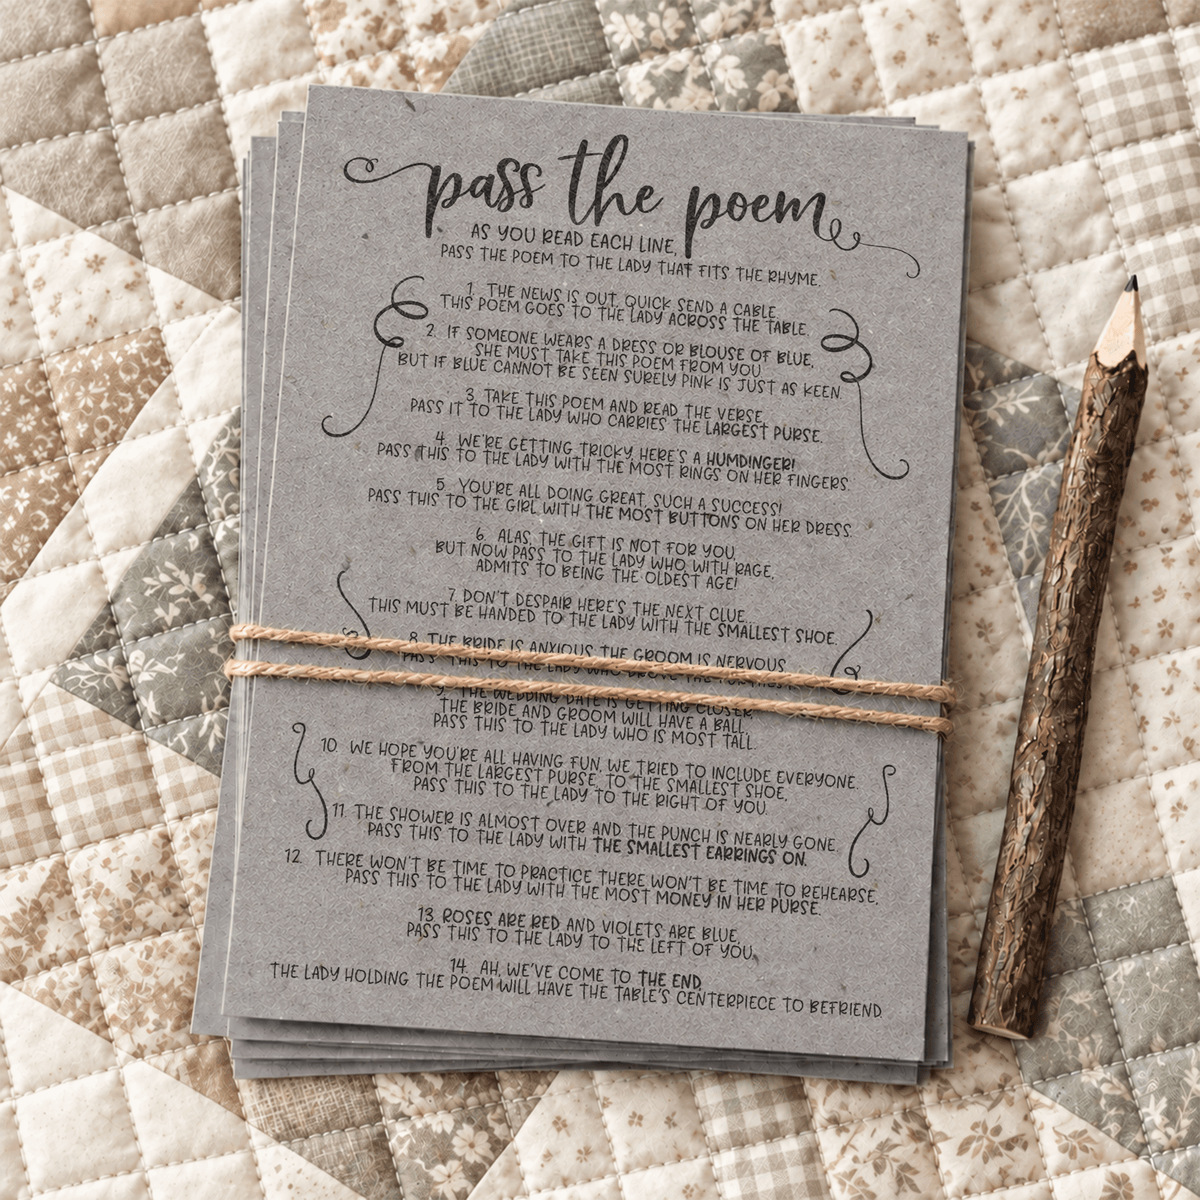 pass the poem
AS YOU READ EACH LINE,
PASS THE POEM TO THE LADY THAT FITS THE RHYME.
1. THE NEWS IS OUT, QUICK SEND A CABLE,
THIS POEM GOES TO THE LADY ACROSS THE TABLE.
2. IF SOMEONE WEARS A DRESS OR BLOUSE OF BLUE,
SHE MUST TAKE THIS POEM FROM YOU
BUT IF BLUE CANNOT BE SEEN SURELY PINK IS JUST AS KEEN
3. TAKE THIS POEM AND READ THE VERSE,
PASS IT TO THE LADY WHO CARRIES THE LARGEST PURSE.
4. WE'RE GETTING TRICKY, HERE'S A HUMDINGER!
PASS THIS TO THE LADY WITH THE MOST RINGS ON HER FINGERS.
5. YOU'RE ALL DOING GREAT, SUCH A SUCCESS!
PASS THIS TO THE GIRL WITH THE MOST BUTTONS ON HER DRESS.
6. ALAS, THE GIFT IS NOT FOR YOU,
BUT NOW PASS TO THE LADY WHO, WITH RAGE,
ADMITS TO BEING THE OLDEST AGE!
7. DON'T DESPAIR HERE'S THE NEXT CLUE...
THIS MUST BE HANDED TO THE LADY WITH THE SMALLEST SHOE.
8. THE BRIDE IS ANXIOUS, THE GROOM IS NERVOUS
PASS THIS TO THE LADY WHO DROVE THE
9. THE WEDDING DATE IS GETTING CLOSER,
THE BRIDE AND GROOM WILL HAVE A BALL,
PASS THIS TO THE LADY WHO IS MOST TALL.
10. WE HOPE YOU'RE ALL HAVING FUN, WE TRIED TO INCLUDE EVERYONE.
FROM THE LARGEST PURSE, TO THE SMALLEST SHOE,
PASS THIS TO THE LADY TO THE RIGHT OF YOU.
11. THE SHOWER IS ALMOST OVER AND THE PUNCH IS NEARLY GONE.
PASS THIS TO THE LADY WITH THE SMALLEST EARRINGS ON.
12. THERE WON'T BE TIME TO PRACTICE THERE WON'T BE TIME TO REHEARSE,
PASS THIS TO THE LADY WITH THE MOST MONEY IN HER PURSE.
13 ROSES ARE RED AND VIOLETS ARE BLUE,
PASS THIS TO THE LADY TO THE LEFT OF YOU,
14. AH, WE'VE COME TO THE END,
THE LADY HOLDING THE POEM WILL HAVE THE TABLE'S CENTERPIECE TO BEFRIEND.